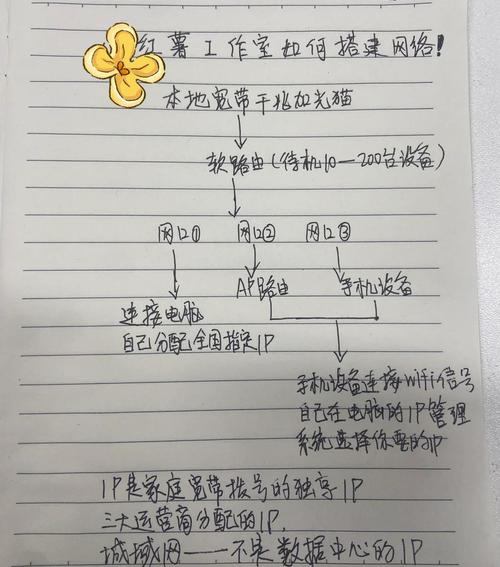 红薯工作室如何搭建网络!
本地宽带千兆加光猫
软路由(待机10—200台设备)
网口① 网口② 网口③
连接电脑 AP路由 手机设备
自己分配全国指定IP
手机设备连接wifi信号
自己在电脑的IP管理
系统选择你要的IP
IP是家庭宽带拨号的独享IP
三大运营商分配的IP.
城域网——不是数据中心的IP